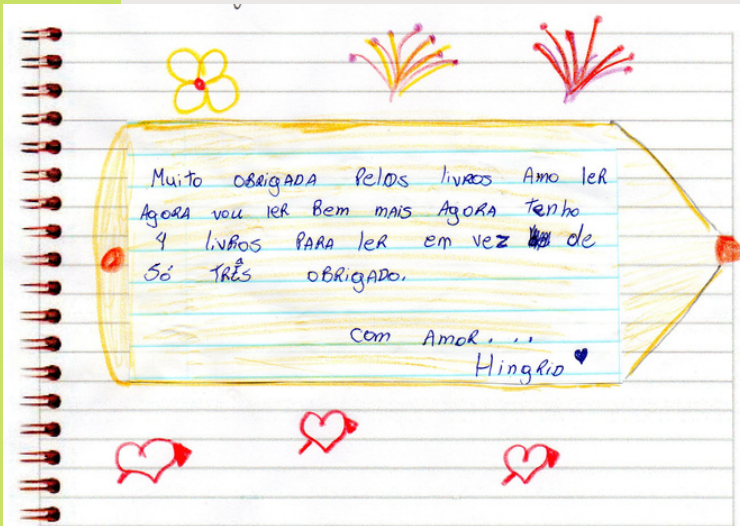 Muito OBRIGADA Pelos livROS Amo leR
AgoRA vou leR Bem mais AgoRA tenho
4 livROS PARA leR em vez de
Só TRÊS OBRIGADO.
Com AmoR...
HingRID